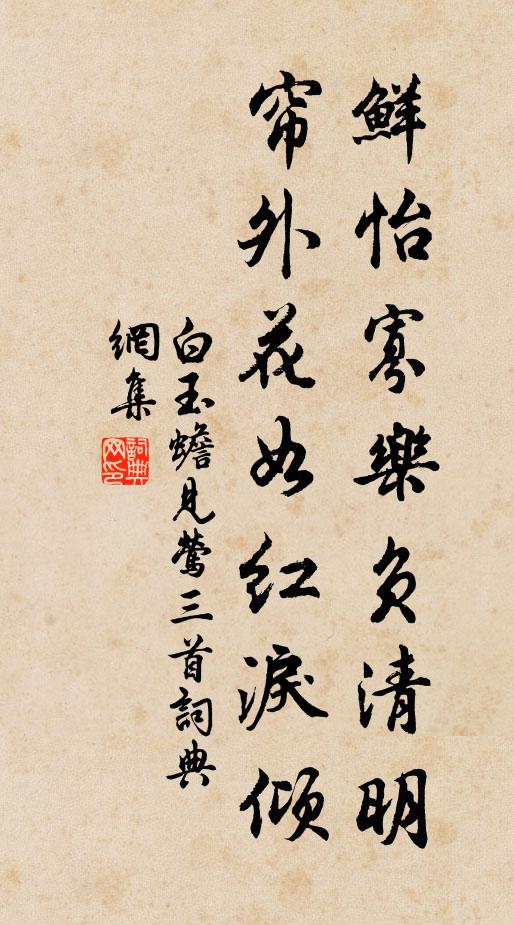 鮮怡寡樂負清明
帘外花如紅淚傾
白玉蟾見鶯三首詞典
網集
詞典
网印